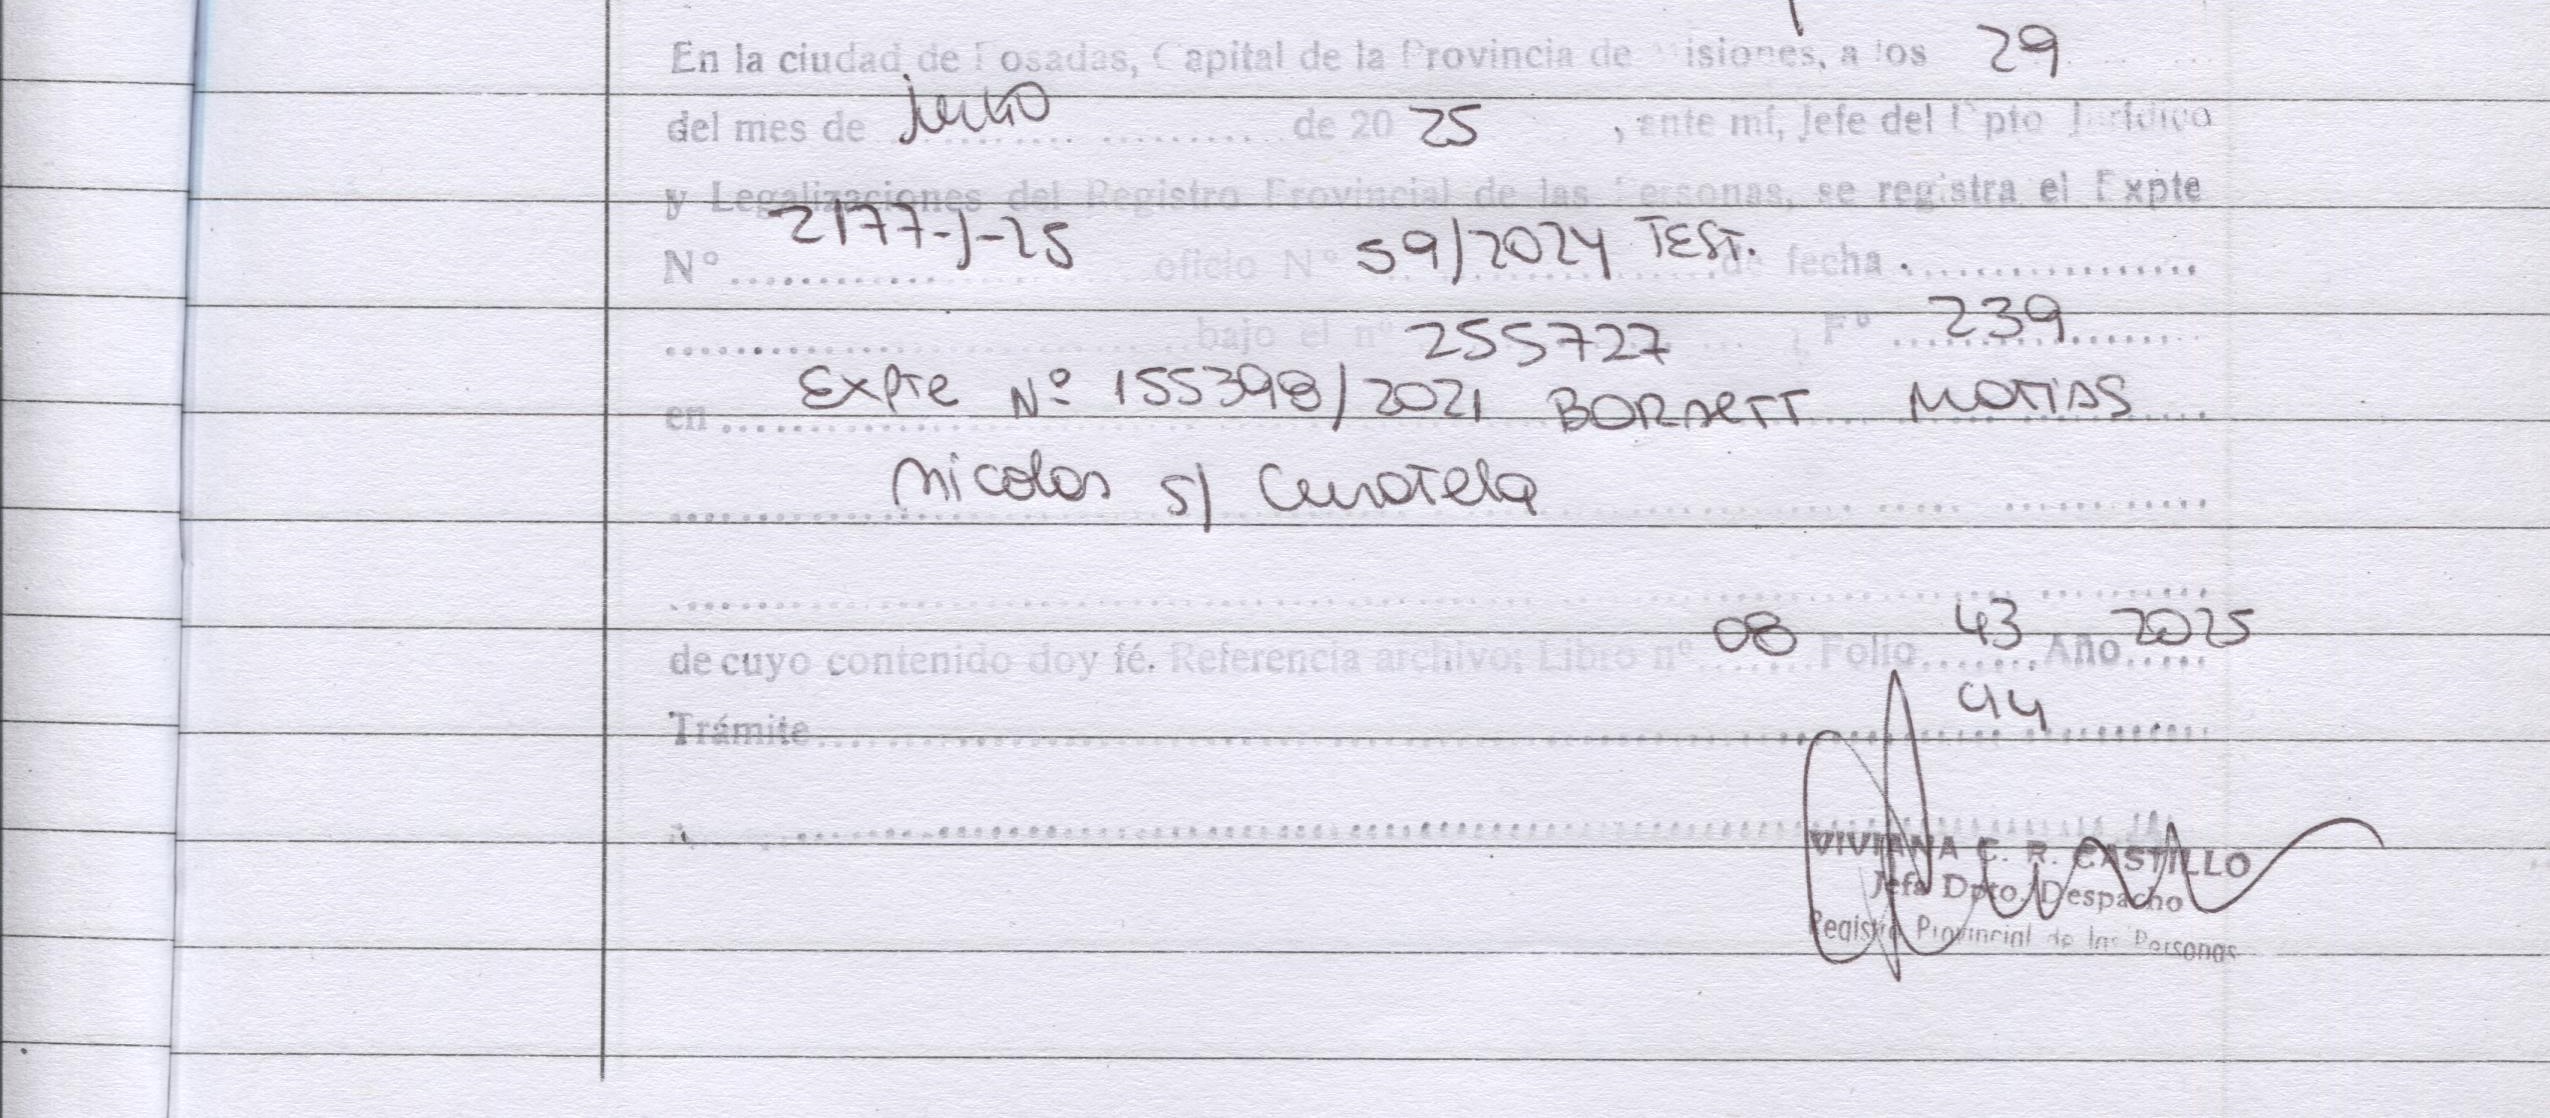 En la ciudad de Posadas, Capital de la Provincia de Misiones, a los 29
del mes de de 20 25 , ante mí, Jefe del Dpto Jurídico
y Legalizaciones del Registro Provincial de las Personas, se registra el Expte
N° 2177-J-25 oficio N° 59/2024 TEST. de fecha
bajo el n° 255727 F° 239
en Expte Nº 155398/2021 MATIAS
Nicolas s/ Curatela
de cuyo contenido doy fé. Referencia archivo: Libro nº 08 Folio 43 Año 2025
44
Trámite
VIVIANA C. R. CASTILLO
Jefa Dpto. Despacho
Registro Provincial de las Personas